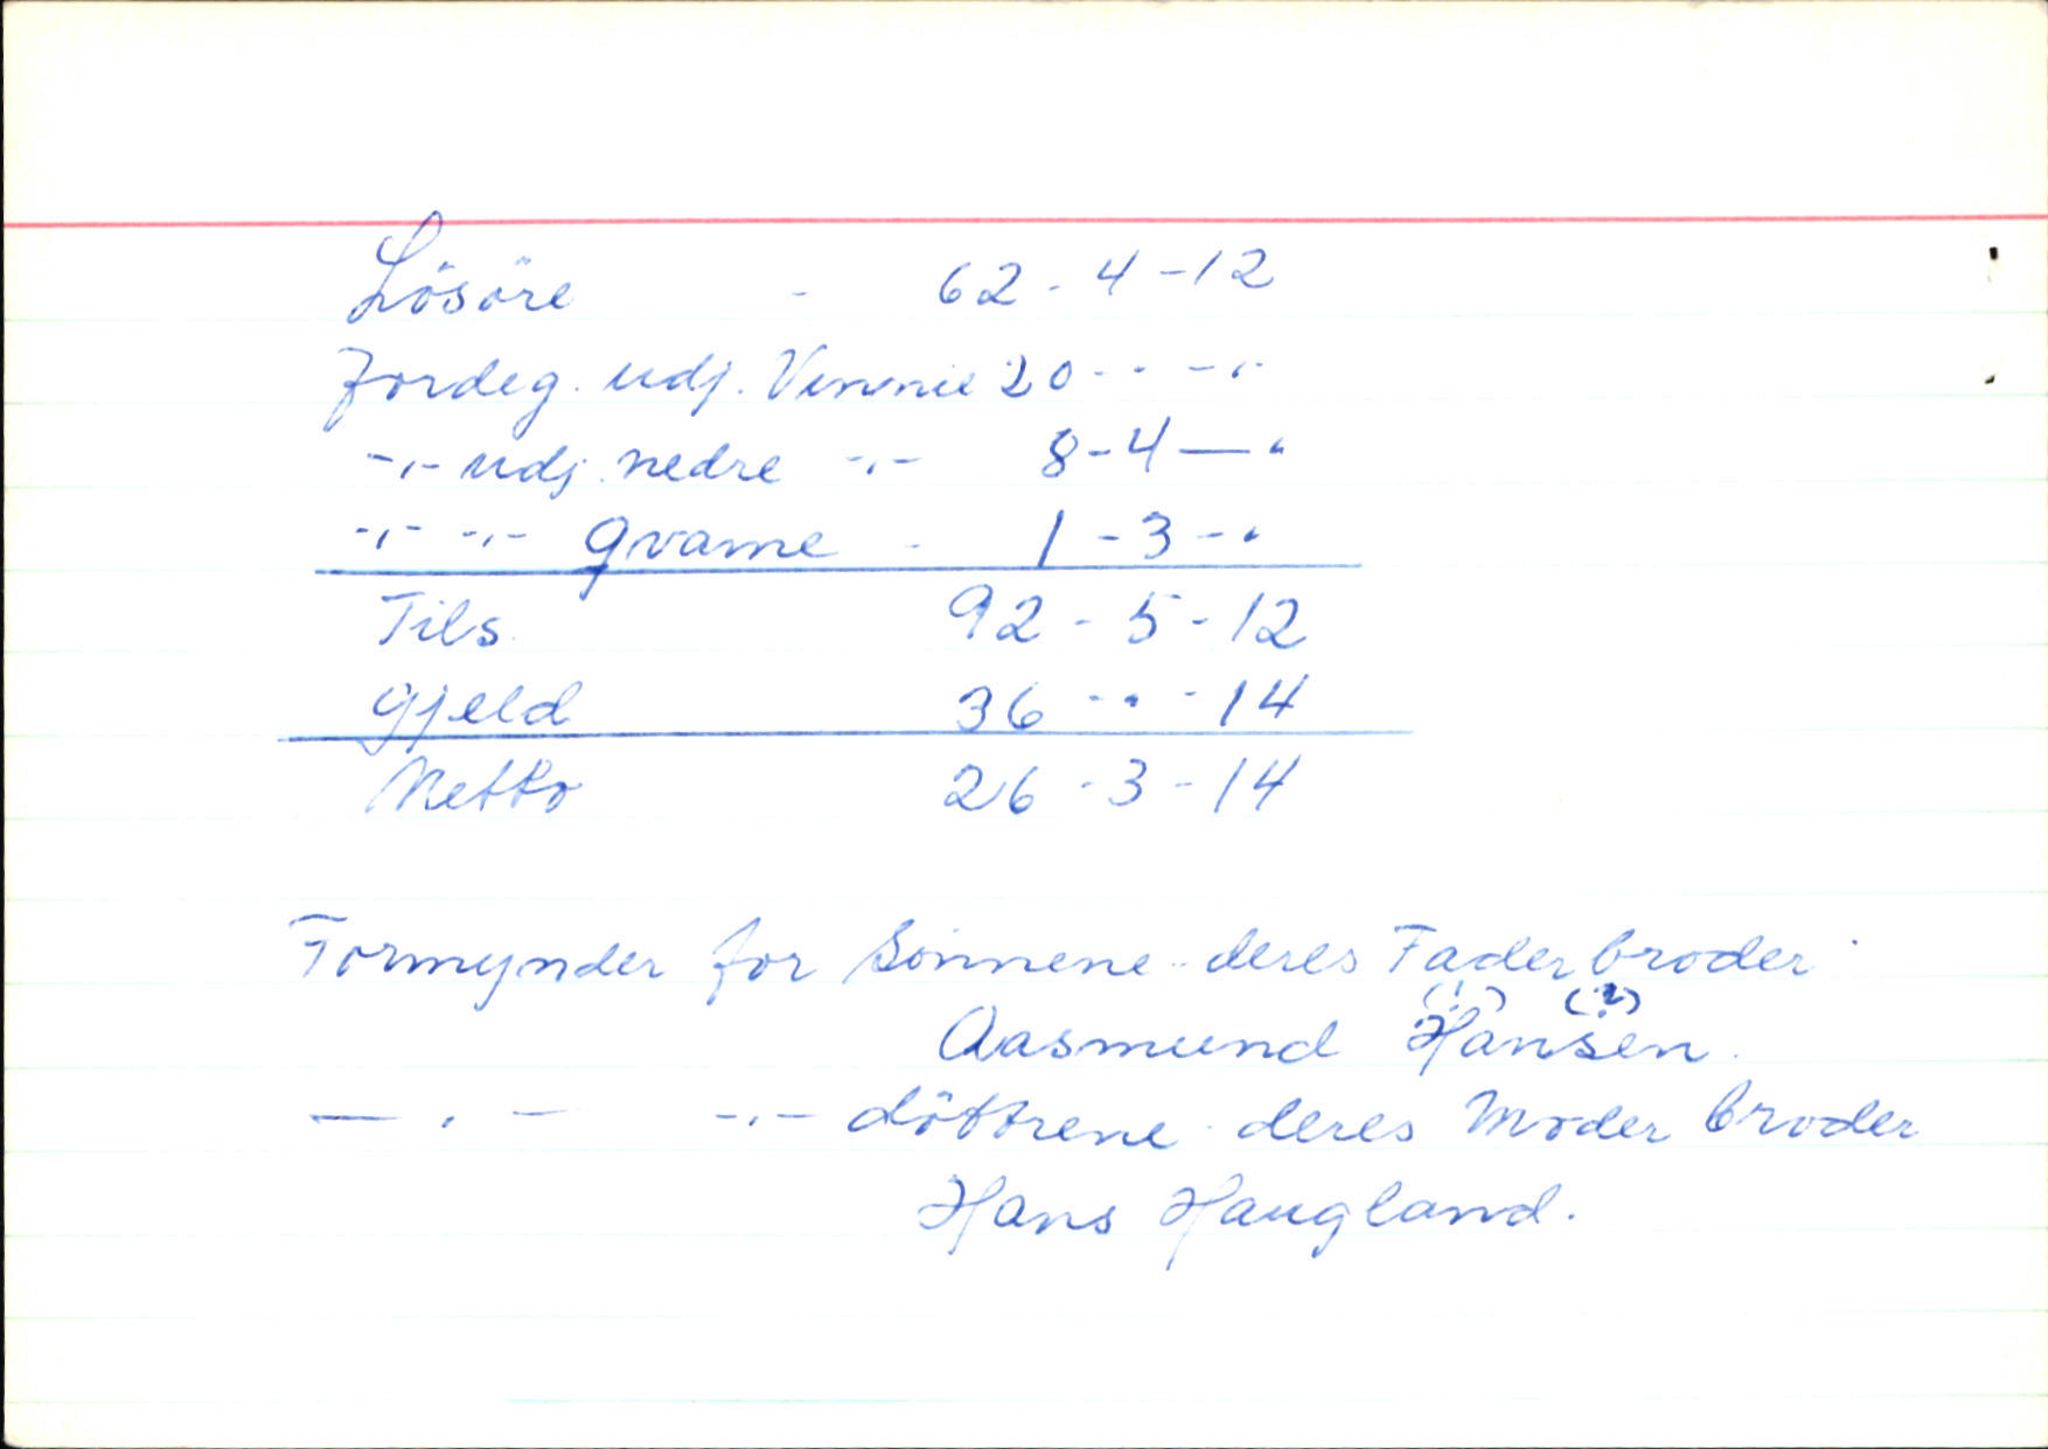 Lösöre - 62 - 4 - 12
Jordeg. udj. Vinnie 20 - " - "
-"- udj. nedre -"- 8 - 4 - "
-"- -"- Qvame - 1 - 3 - "
Tils. 92 - 5 - 12
Gjeld 36 - " - 14
Netto 26 - 3 - 14
Formynder for Sönnene - deres Faderbroder
(!) (?)
Aasmund Hansen.
- " - -"- döttrene - deres Moder broder
Hans Haugland.